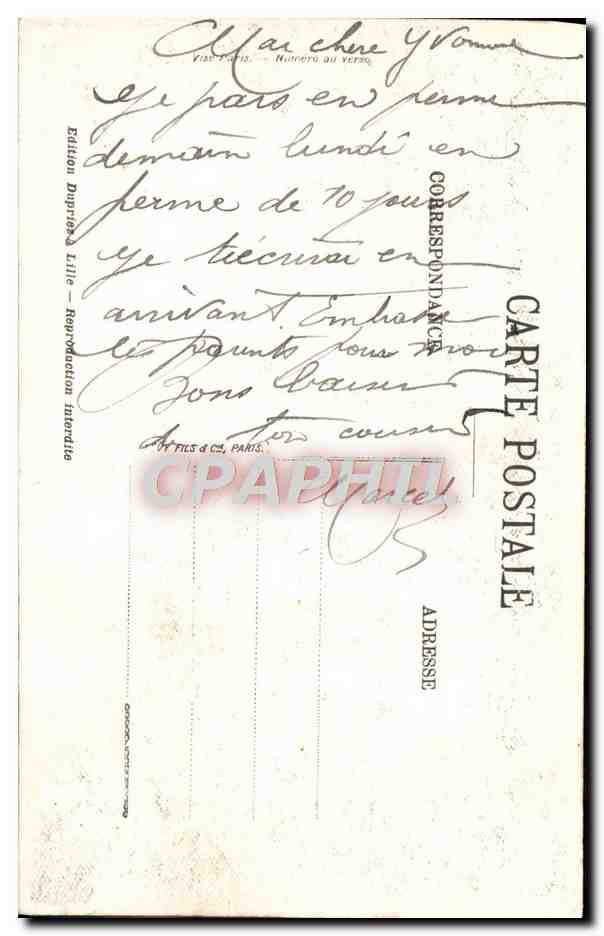 Ma chere Yvonne
Visé Paris. — Numéro au verso
Je pars en perme
demain lundi en
perme de 10 jours
Je t'écrirai en
arrivant. Embrasse
les parents pour moi
Bons baisers
de ton cousin
Marcel
FILS & Cie, PARIS.
CPAPHIL
CARTE POSTALE
CORRESPONDANCE
ADRESSE
Edition Duprier à Lille — Reproduction interdite